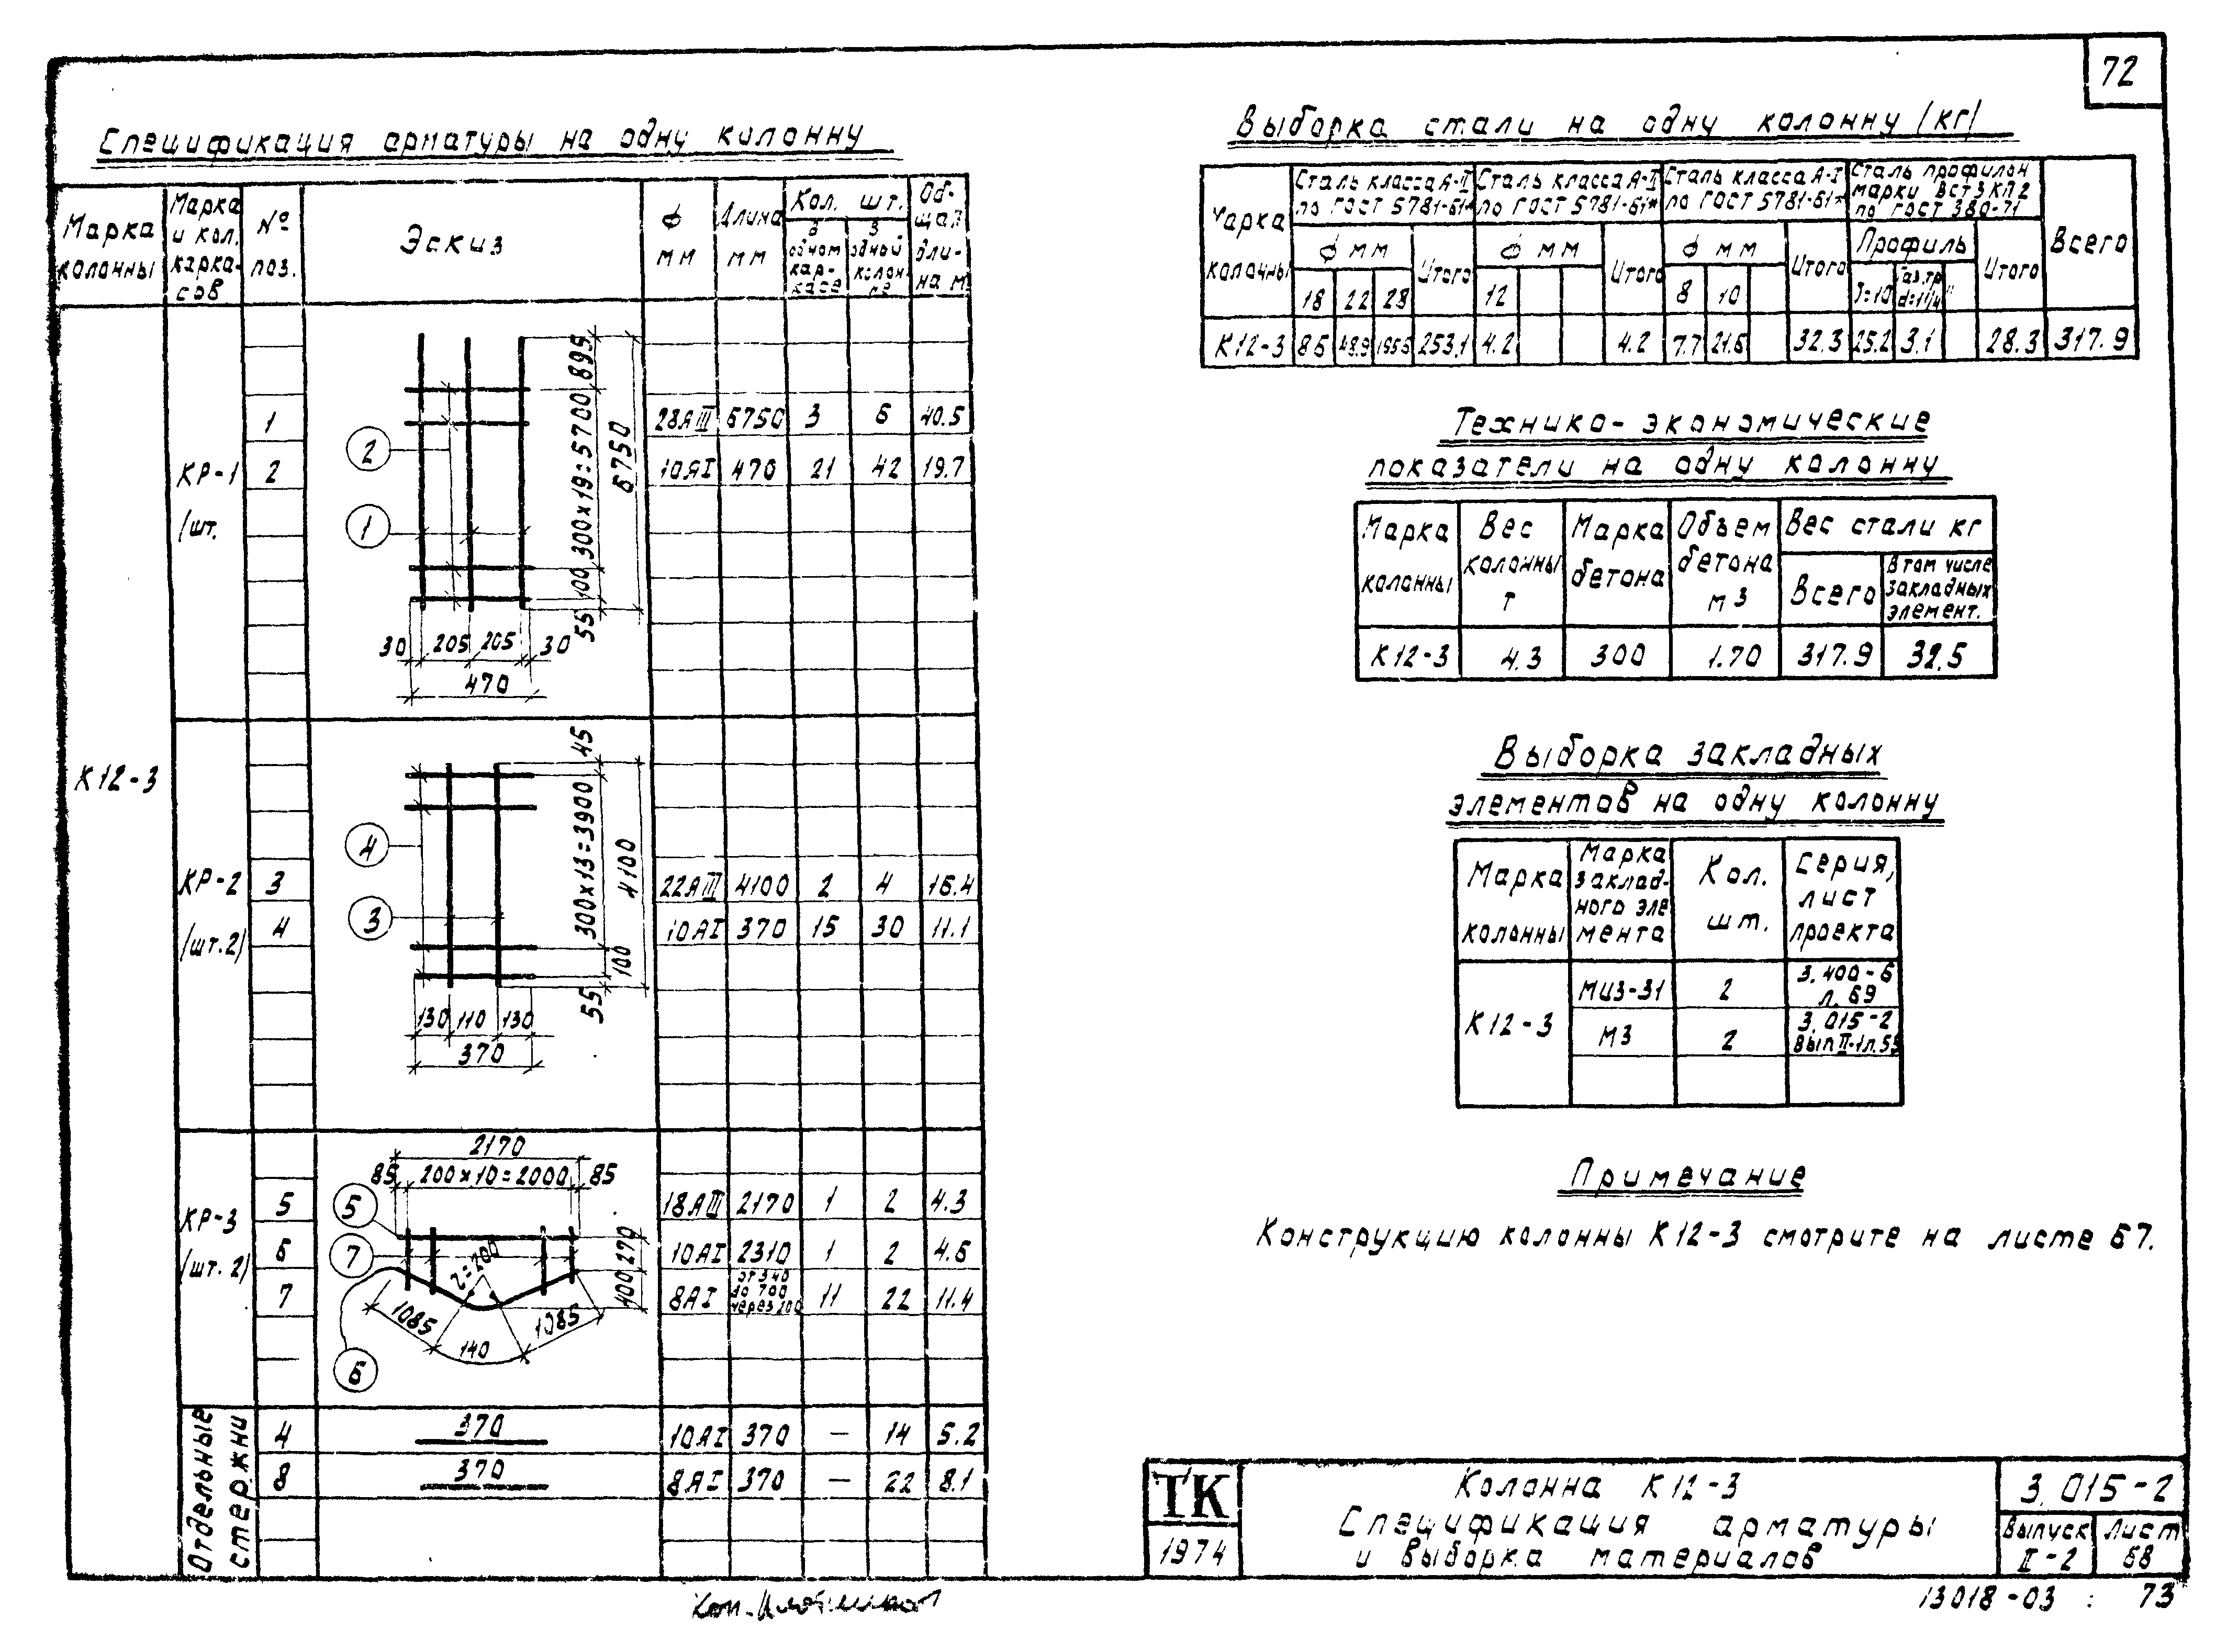 72
Спецификация арматуры на одну колонну
Марка колонны
Марка и кол. каркасов
№ поз.
Эскиз
ф мм
Длина мм
Кол. шт.
в одном каркасе
в одной колонне
Общая длина м
К12-3
КР-1
1 28АIII 6750 3 6 40.5
2 10АI 470 21 42 19.7
895
300х19=5700
6750
100
55
30 205 205 30
470
2
1
КР-2
(шт.2)
3 22АIII 4100 2 4 16.4
4 10АI 370 15 30 11.1
45
300х13=3900
4100
100
55
130 110 130
370
4
3
КР-3
(шт.2)
5 18АIII 2170 1 2 4.3
6 10АI 2310 1 2 4.6
7 8АI от 340 до 700 через 200 11 22 11.4
2170
85 200х10=2000 85
270
400
r=200
1085 140 1085
5
7
6
Отдельные стержни
4 370 10АI 370 — 14 5.2
8 370 8АI 370 — 22 8.1
Выборка стали на одну колонну (кг)
Марка колонны
Сталь класса А-II по ГОСТ 5781-61*
Сталь класса А-II по ГОСТ 5781-61*
Сталь класса А-I по ГОСТ 5781-61*
Сталь профильн марки ВСт3КП2 по ГОСТ 380-71
Всего
ф мм Итого ф мм Итого ф мм Итого Профиль Итого
18 22 28 12 8 10 Газ.тр d=1 1/4"
К12-3 8.6 48.9 195.6 253.1 4.2 4.2 7.7 21.6 32.3 25.2 3.1 28.3 317.9
Технико-экономические
показатели на одну колонну
Марка колонны
Вес колонны т
Марка бетона
Объем бетона м3
Вес стали кг
Всего
В том числе закладных элемент.
К12-3 4.3 300 1.70 317.9 32.5
Выборка закладных
элементов на одну колонну
Марка колонны
Марка закладного элемента
Кол. шт.
Серия, лист проекта
К12-3
МИЗ-31 2 3.400-6 л. 69
М3 2 3.015-2 Вып II-1 л.55
Примечание
Конструкцию колонны К12-3 смотрите на листе 67.
ТК
1974
Колонна К12-3
Спецификация арматуры
и выборка материалов
3.015-2
Выпуск II-2
Лист 68
13018-03 : 73